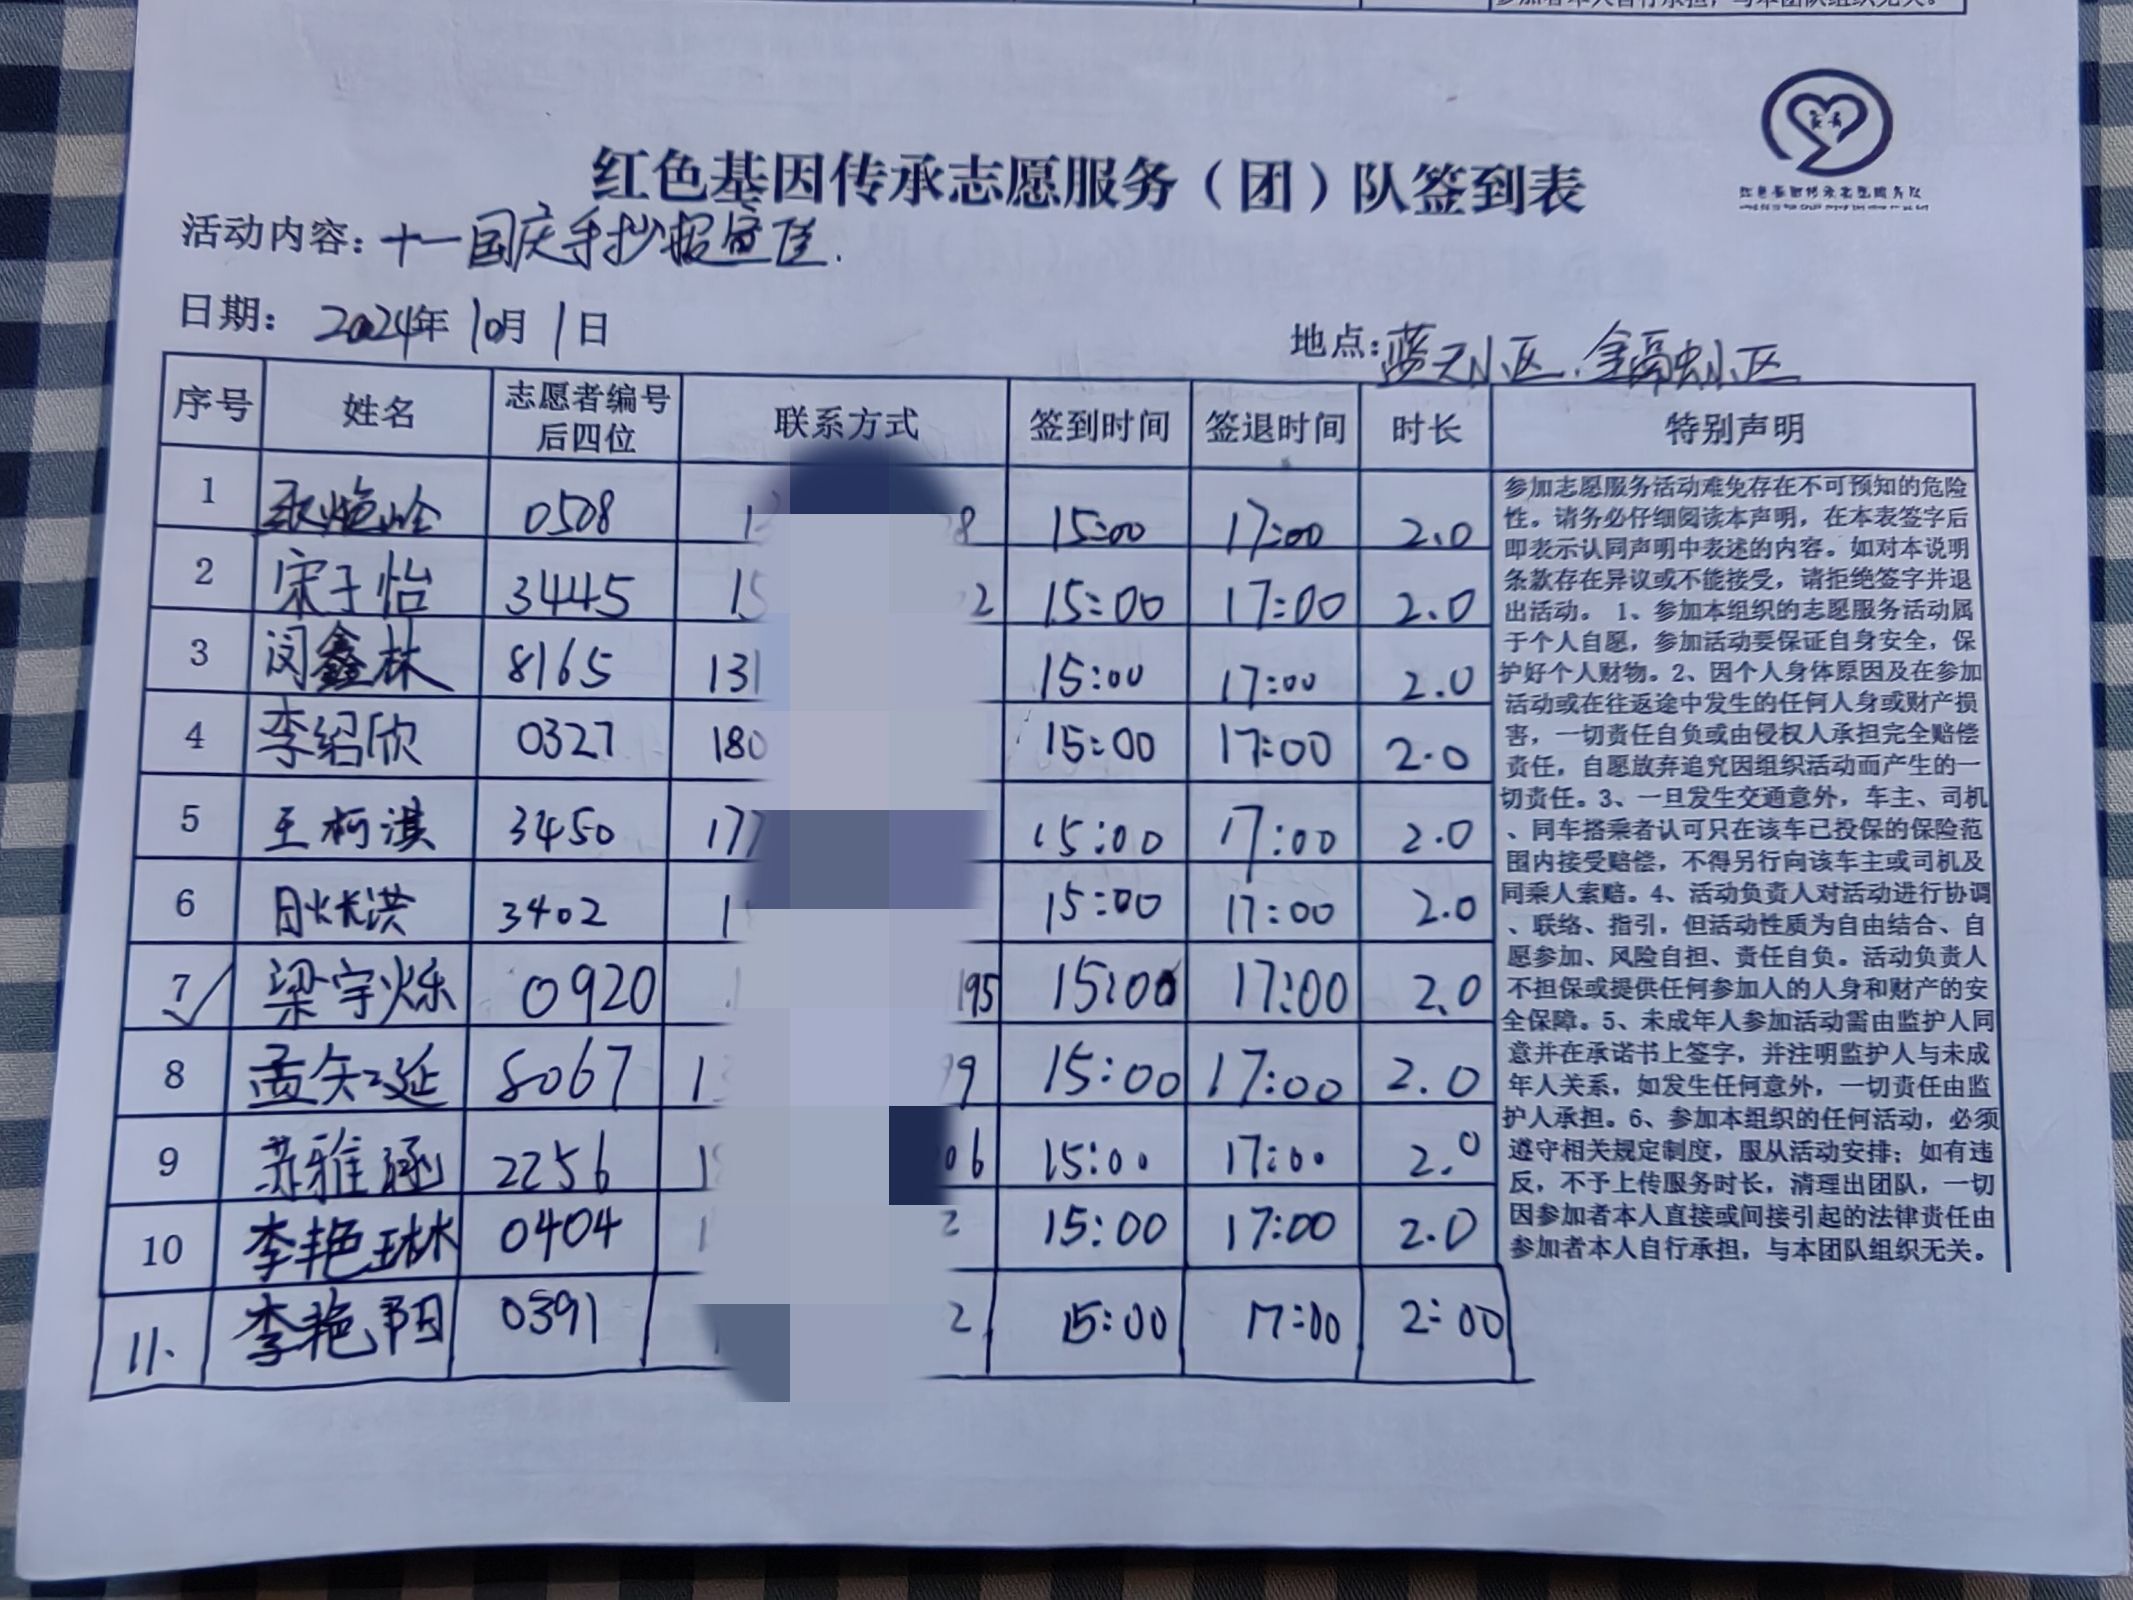 红色基因传承志愿服务（团）队签到表
活动内容：十一国庆手抄报宣传.
日期：2024年10月1日
地点：蓝天小区、金融小区
序号 姓名 志愿者编号后四位 联系方式 签到时间 签退时间 时长 特别声明
1 0508 15:00 17:00 2.0
2 宋子怡 3445 15 2 15:00 17:00 2.0
3 闵鑫林 8165 131 15:00 17:00 2.0
4 李绍欣 0327 180 15:00 17:00 2.0
5 王柯淇 3450 177 15:00 17:00 2.0
6 3402 1 15:00 17:00 2.0
7 梁宇烁 0920 195 15:00 17:00 2.0
8 孟矢延 8067 1 9 15:00 17:00 2.0
9 苏雅涵 2256 1 06 15:00 17:00 2.0
10 李艳琳 0404 1 2 15:00 17:00 2.0
11. 李艳阳 0391 2 15:00 17:00 2:00
参加志愿服务活动难免存在不可预知的危险
性。请务必仔细阅读本声明，在本表签字后
即表示认同声明中表述的内容。如对本说明
条款存在异议或不能接受，请拒绝签字并退
出活动。1、参加本组织的志愿服务活动属
于个人自愿，参加活动要保证自身安全，保
护好个人财物。2、因个人身体原因及在参加
活动或在往返途中发生的任何人身或财产损
害，一切责任自负或由侵权人承担完全赔偿
责任，自愿放弃追究因组织活动而产生的一
切责任。3、一旦发生交通意外，车主、司机
、同车搭乘者认可只在该车已投保的保险范
围内接受赔偿，不得另行向该车主或司机及
同乘人索赔。4、活动负责人对活动进行协调
、联络、指引，但活动性质为自由结合、自
愿参加、风险自担、责任自负。活动负责人
不担保或提供任何参加人的人身和财产的安
全保障。5、未成年人参加活动需由监护人同
意并在承诺书上签字，并注明监护人与未成
年人关系，如发生任何意外，一切责任由监
护人承担。6、参加本组织的任何活动，必须
遵守相关规定制度，服从活动安排；如有违
反，不予上传服务时长，清理出团队，一切
因参加者本人直接或间接引起的法律责任由
参加者本人自行承担，与本团队组织无关。